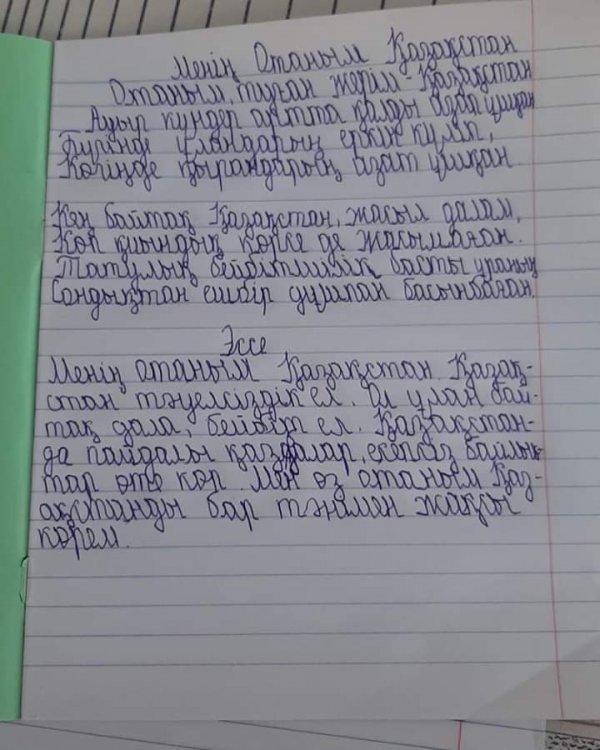 Менің Отаным Қазақстан
Отаным, туған жерім Қазақстан
Ауыр күндер артта қалды азап ұшқан
Бүгінде ұландарың еркін күліп,
Көгіңде қырандарың азат ұшқан.
Кең байтақ Қазақстан, жасыл далам,
Көп қиындық көрсе де жасымаған.
Татулық бейбітшілік басты ұраның
Сондықтан ешбір дұшпан басынбаған.
Эссе
Менің отаным Қазақстан. Қазақ-
стан тәуелсіздік ел. Ол ұлан бай-
тақ дала, бейбіт ел. Қазақстан-
да пайдалы қаздалар, есепсіз байлық-
тар өте көп. Мен өз отаным Қаз-
ақстанды бар тәнімен жақсы
көрем.